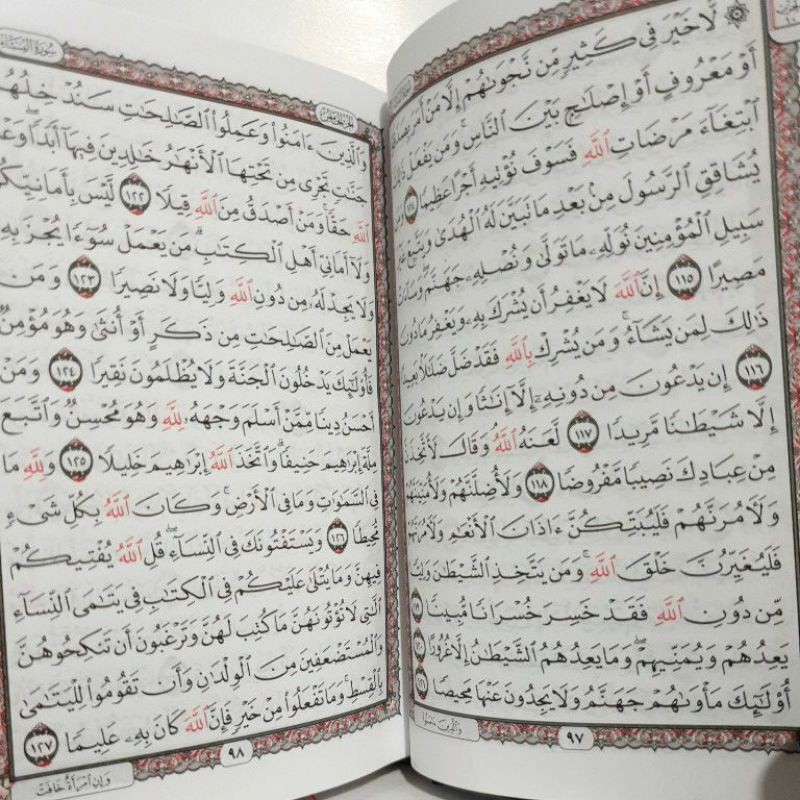 لَّا خَيْرَ فِى كَثِيرٍ مِّن نَّجْوَىٰهُمْ إِلَّا مَنْ أَمَرَ بِصَدَقَةٍ
أَوْ مَعْرُوفٍ أَوْ إِصْلَٰحٍۭ بَيْنَ ٱلنَّاسِ ۚ وَمَن يَفْعَلْ ذَٰلِكَ
ٱبْتِغَآءَ مَرْضَاتِ ٱللَّهِ فَسَوْفَ نُؤْتِيهِ أَجْرًا عَظِيمًا ١١٤ وَمَن
يُشَاقِقِ ٱلرَّسُولَ مِنۢ بَعْدِ مَا تَبَيَّنَ لَهُ ٱلْهُدَىٰ وَيَتَّبِعْ غَيْرَ
سَبِيلِ ٱلْمُؤْمِنِينَ نُوَلِّهِۦ مَا تَوَلَّىٰ وَنُصْلِهِۦ جَهَنَّمَ وَسَآءَتْ
مَصِيرًا ١١٥ إِنَّ ٱللَّهَ لَا يَغْفِرُ أَن يُشْرَكَ بِهِۦ وَيَغْفِرُ مَا دُونَ
ذَٰلِكَ لِمَن يَشَآءُ ۚ وَمَن يُشْرِكْ بِٱللَّهِ فَقَدْ ضَلَّ ضَلَٰلًۢا بَعِيدًا
١١٦ إِن يَدْعُونَ مِن دُونِهِۦٓ إِلَّآ إِنَٰثًا وَإِن يَدْعُونَ
إِلَّا شَيْطَٰنًا مَّرِيدًا ١١٧ لَّعَنَهُ ٱللَّهُ ۘ وَقَالَ لَأَتَّخِذَنَّ
مِنْ عِبَادِكَ نَصِيبًا مَّفْرُوضًا ١١٨ وَلَأُضِلَّنَّهُمْ وَلَأُمَنِّيَنَّهُمْ
وَلَءَامُرَنَّهُمْ فَلَيُبَتِّكُنَّ ءَاذَانَ ٱلْأَنْعَٰمِ وَلَءَامُرَنَّهُمْ
فَلَيُغَيِّرُنَّ خَلْقَ ٱللَّهِ ۚ وَمَن يَتَّخِذِ ٱلشَّيْطَٰنَ وَلِيًّا
مِّن دُونِ ٱللَّهِ فَقَدْ خَسِرَ خُسْرَانًا مُّبِينًا ١١٩
يَعِدُهُمْ وَيُمَنِّيهِمْ ۖ وَمَا يَعِدُهُمُ ٱلشَّيْطَٰنُ إِلَّا غُرُورًا ١٢٠
أُو۟لَٰٓئِكَ مَأْوَىٰهُمْ جَهَنَّمُ وَلَا يَجِدُونَ عَنْهَا مَحِيصًا ١٢١
٩٧
وَٱلَّذِينَ ءَامَنُوا۟
سُورَةُ النِّسَاءِ
وَٱلَّذِينَ ءَامَنُوا۟ وَعَمِلُوا۟ ٱلصَّٰلِحَٰتِ سَنُدْخِلُهُمْ
جَنَّٰتٍ تَجْرِى مِن تَحْتِهَا ٱلْأَنْهَٰرُ خَٰلِدِينَ فِيهَآ أَبَدًا ۖ وَعْدَ
ٱللَّهِ حَقًّا ۚ وَمَنْ أَصْدَقُ مِنَ ٱللَّهِ قِيلًا ١٢٢ لَّيْسَ بِأَمَانِيِّكُمْ
وَلَآ أَمَانِىِّ أَهْلِ ٱلْكِتَٰبِ ۗ مَن يَعْمَلْ سُوٓءًا يُجْزَ بِهِۦ
وَلَا يَجِدْ لَهُۥ مِن دُونِ ٱللَّهِ وَلِيًّا وَلَا نَصِيرًا ١٢٣ وَمَن
يَعْمَلْ مِنَ ٱلصَّٰلِحَٰتِ مِن ذَكَرٍ أَوْ أُنثَىٰ وَهُوَ مُؤْمِنٌ
فَأُو۟لَٰٓئِكَ يَدْخُلُونَ ٱلْجَنَّةَ وَلَا يُظْلَمُونَ نَقِيرًا ١٢٤ وَمَنْ
أَحْسَنُ دِينًا مِّمَّنْ أَسْلَمَ وَجْهَهُۥ لِلَّهِ وَهُوَ مُحْسِنٌ وَٱتَّبَعَ
مِلَّةَ إِبْرَٰهِيمَ حَنِيفًا ۗ وَٱتَّخَذَ ٱللَّهُ إِبْرَٰهِيمَ خَلِيلًا ١٢٥ وَلِلَّهِ مَا
فِى ٱلسَّمَٰوَٰتِ وَمَا فِى ٱلْأَرْضِ ۚ وَكَانَ ٱللَّهُ بِكُلِّ شَىْءٍ
مُّحِيطًا ١٢٦ وَيَسْتَفْتُونَكَ فِى ٱلنِّسَآءِ ۖ قُلِ ٱللَّهُ يُفْتِيكُمْ
فِيهِنَّ وَمَا يُتْلَىٰ عَلَيْكُمْ فِى ٱلْكِتَٰبِ فِى يَتَٰمَى ٱلنِّسَآءِ
ٱلَّٰتِى لَا تُؤْتُونَهُنَّ مَا كُتِبَ لَهُنَّ وَتَرْغَبُونَ أَن تَنكِحُوهُنَّ
وَٱلْمُسْتَضْعَفِينَ مِنَ ٱلْوِلْدَٰنِ وَأَن تَقُومُوا۟ لِلْيَتَٰمَىٰ
بِٱلْقِسْطِ ۚ وَمَا تَفْعَلُوا۟ مِنْ خَيْرٍ فَإِنَّ ٱللَّهَ كَانَ بِهِۦ عَلِيمًا ١٢٧
٩٨
وَإِنِ ٱمْرَأَةٌ خَافَتْ